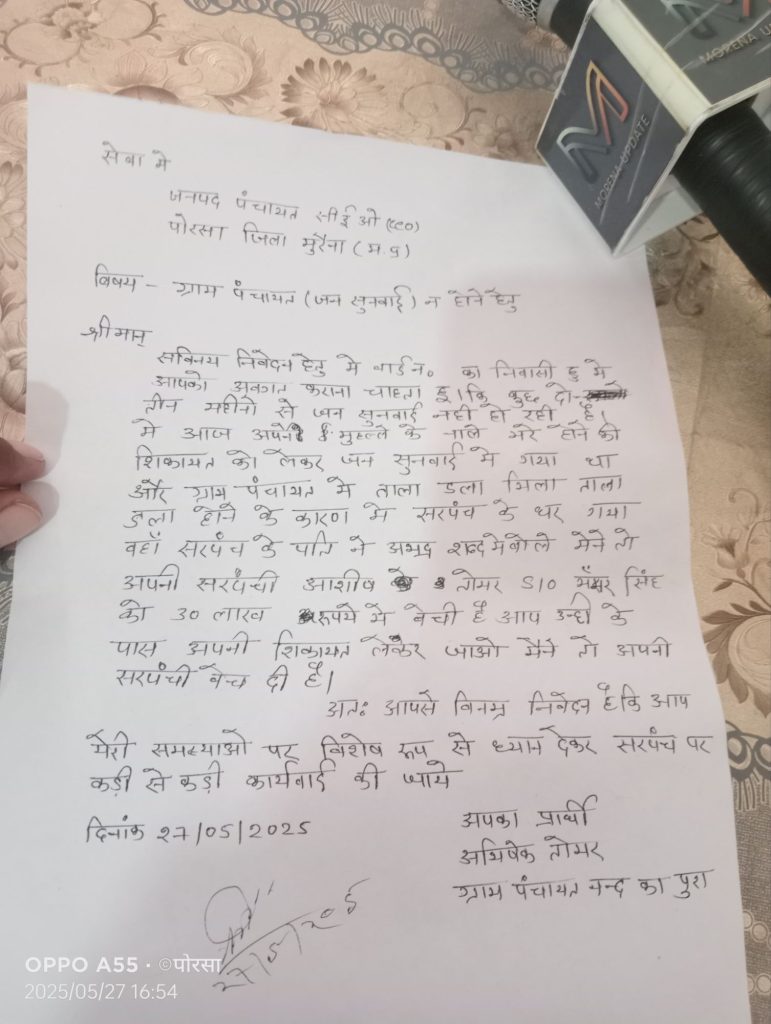 MORENA UPDATE
MORENA UP
सेवा मे
जनपद पंचायत सीईओ (CEO)
पोरसा जिला मुरैना (म.प्र)
विषय - ग्राम पंचायत (जन सुनवाई) न होने हेतु
श्रीमान्
सविनय निवेदन हेतु मे वार्ड न॰ का निवासी हु मे
आपको अवगत कराना चाहता हू। कि कुछ दो-
तीन महीनो से जन सुनवाई नही हो रही है।
मे आज अपने मुहल्ले के नाले भरे होने की
शिकायत को लेकर जन सुनवाई मे गया था
और ग्राम पंचायत मे ताला डला मिला ताला
डला होने के कारण मे सरपंच के घर गया
वहाँ सरपंच के पति ने अभद्र शब्द मे बोले मेने तो
अपनी सरपंची आशीष तोमर S/O सिंह
को 30 लाख रूपये मे बेची है आप उन्ही के
पास अपनी शिकायत लेकर जाओ मैने तो अपनी
सरपंची बेच दी है।
अतः आपसे विनम्र निवेदन है कि आप
मेरी समस्याओ पर विशेष रूप से ध्यान देकर सरपंच पर
कड़ी से कड़ी कार्यवाई की जाये
दिनांक 27/05/2025
अपका प्रार्थी
अभिषेक तोमर
ग्राम पंचायत नन्द का पुरा
OPPO A55 · ©पोरसा
2025/05/27 16:54